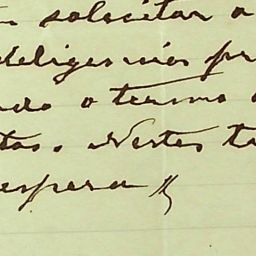 solicitar a
deligencias pr
ndo o termo
tas. Nestes t
espera